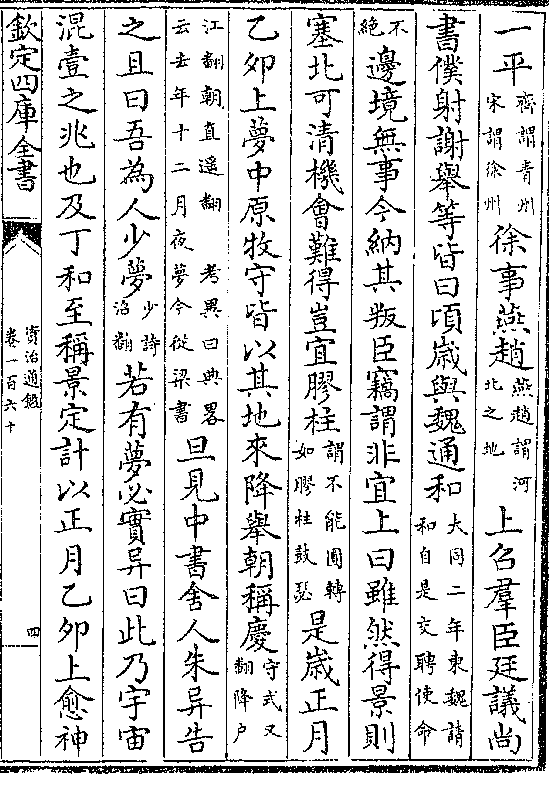 一平齊謂青州宋謂徐州徐事燕趙燕趙謂河北之地上召羣臣廷議尚
書僕射謝舉等皆曰頃歲與魏通和大同二年東魏請和自是交聘使命
不絶邊境無事今納其叛臣竊謂非宜上曰雖然得景則
塞北可清機會難得豈宜膠柱謂不能圓轉如膠柱鼓瑟是歲正月
乙夘上夢中原牧守皆以其地來降舉朝稱慶守式又翻降户
江翻朝直遥翻考異曰典畧云去年十二月夜夢今從梁書旦見中書舍人朱异告
之且曰吾為人少夢少詩沼翻若有夢必實异曰此乃宇宙
混壹之兆也及丁和至稱景定計以正月乙夘上愈神
欽定四庫全書
資治通鑑
卷一百六十
四